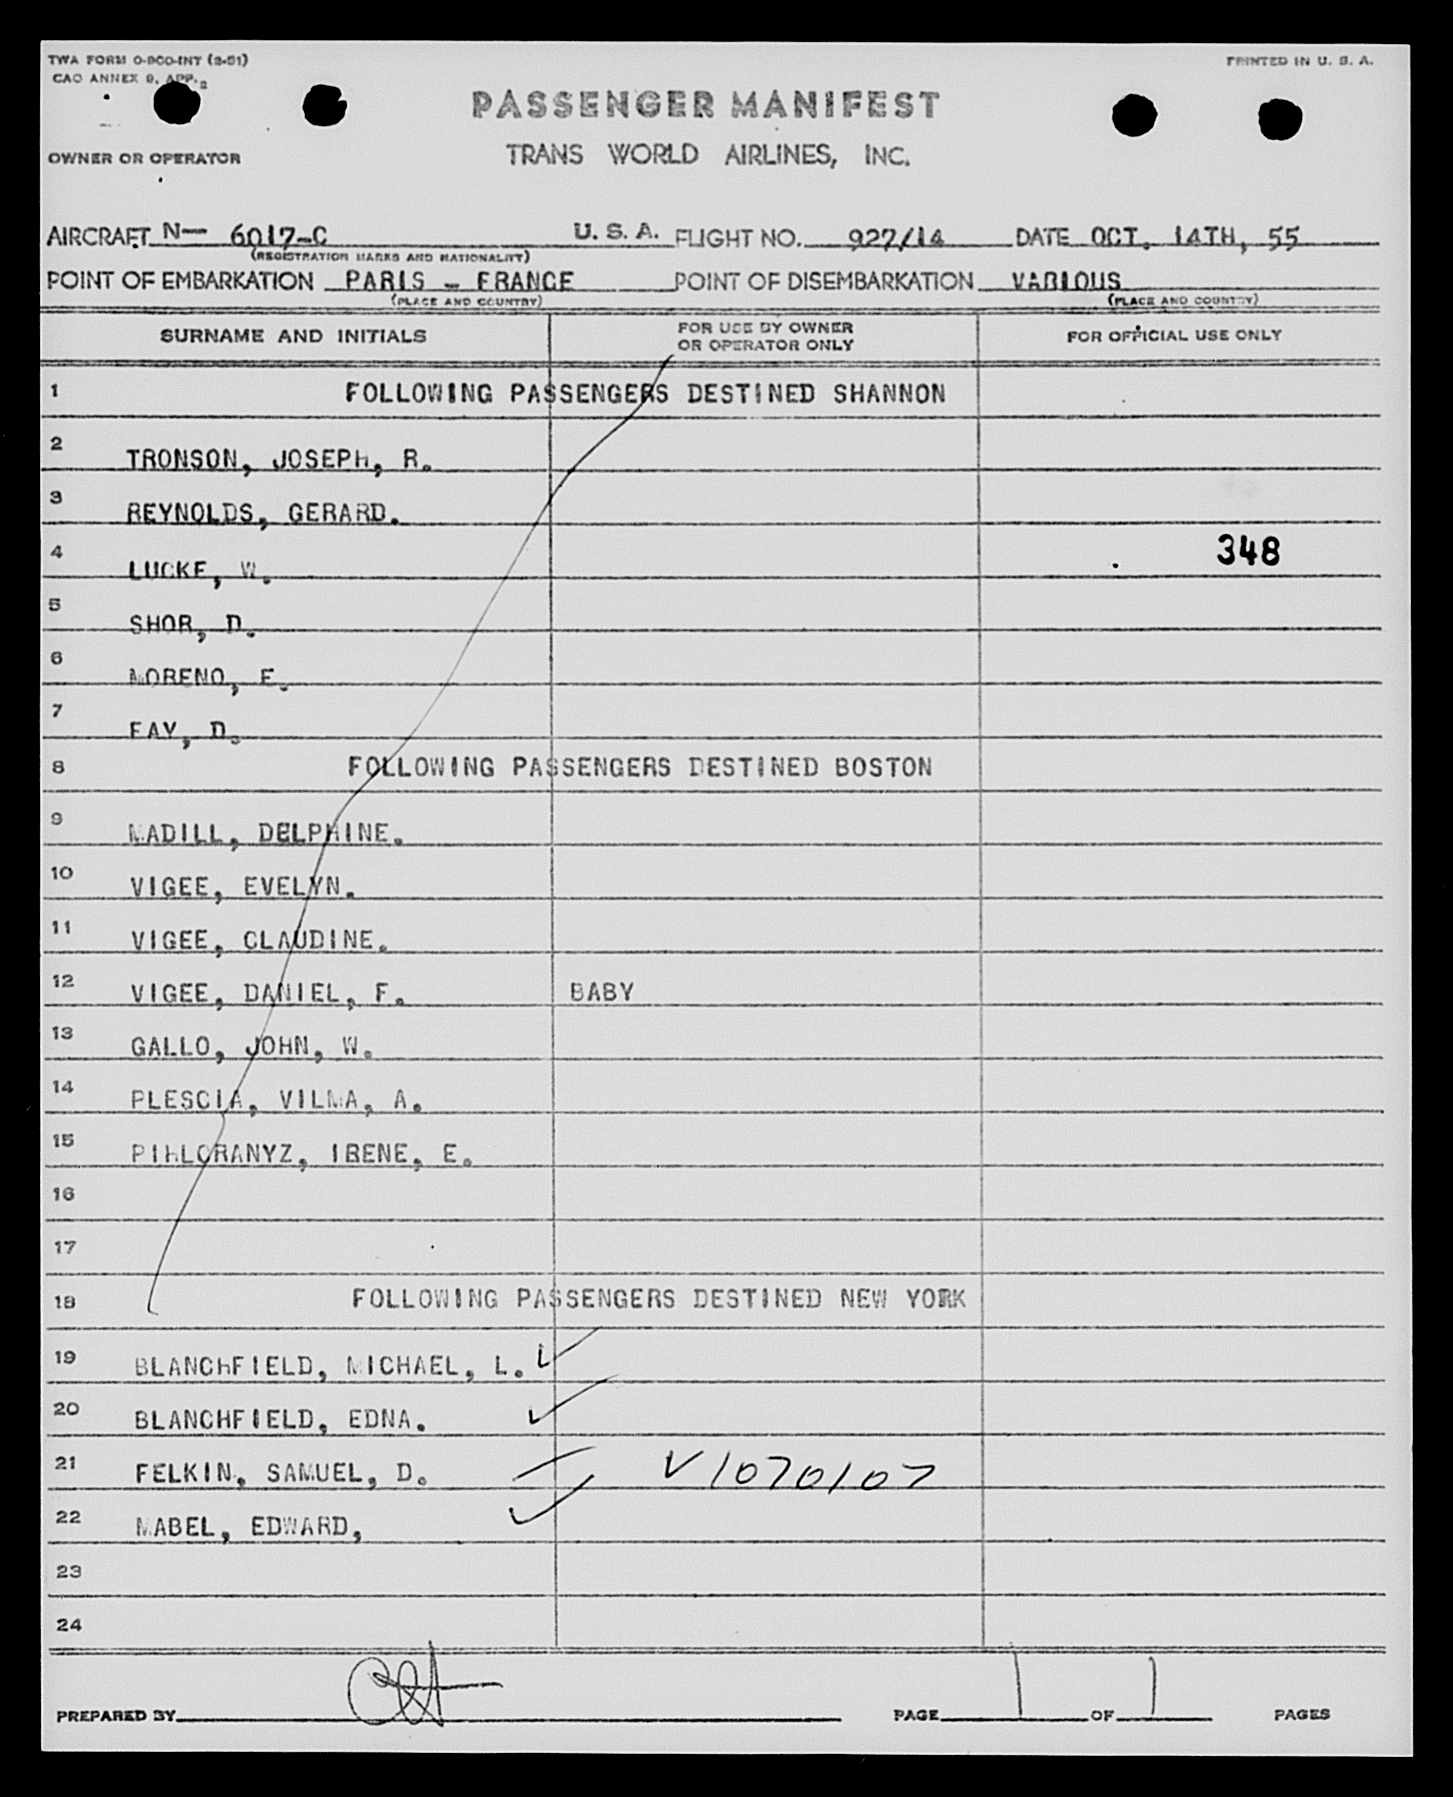 TWA FORM O-900-INT (3-51)
CAO ANNEX 9, APP. 2
PRINTED IN U. S. A.
PASSENGER MANIFEST
OWNER OR OPERATOR
TRANS WORLD AIRLINES, INC.
AIRCRAFT N— 6017-C U. S. A. FLIGHT NO. 927/14 DATE OCT. 14TH, 55
(REGISTRATION MARKS AND NATIONALITY)
POINT OF EMBARKATION PARIS - FRANCE POINT OF DISEMBARKATION VARIOUS
(PLACE AND COUNTRY) (PLACE AND COUNTRY)
SURNAME AND INITIALS FOR USE BY OWNER OR OPERATOR ONLY FOR OFFICIAL USE ONLY
1 FOLLOWING PASSENGERS DESTINED SHANNON
2 TRONSON, JOSEPH, R.
3 REYNOLDS, GERARD.
4 LUCKE, W. 348
5 SHOR, D.
6 MORENO, E.
7 FAY, D.
8 FOLLOWING PASSENGERS DESTINED BOSTON
9 MADILL, DELPHINE.
10 VIGEE, EVELYN.
11 VIGEE, CLAUDINE.
12 VIGEE, DANIEL, F. BABY
13 GALLO, JOHN, W.
14 PLESCIA, VILMA, A.
15 IRENE, E.
16
17
18 FOLLOWING PASSENGERS DESTINED NEW YORK
19 BLANCHFIELD, MICHAEL, L.
20 BLANCHFIELD, EDNA.
21 FELKIN, SAMUEL, D. V1070107
22 MABEL, EDWARD,
23
24
PREPARED BY PAGE 1 OF 1 PAGES